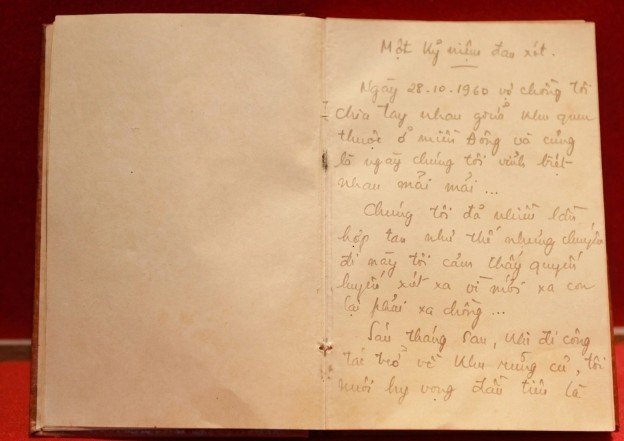 Một kỷ niệm đau xót.
Ngày 28.10.1960 vợ chồng tôi
chia tay nhau giữa khu quen
thuộc ở miền Đông và cũng
là ngày chúng tôi vĩnh biệt
nhau mãi mãi...
Chúng tôi đã nhiều lần
hợp tan như thế nhưng chuyến
đi này tôi cảm thấy quyến
luyến xót xa vì mới xa con
lại phải xa chồng...
Sáu tháng sau, khi đi công
tác trở về khu rừng cũ, tôi
nuôi hy vọng đầu tiên là